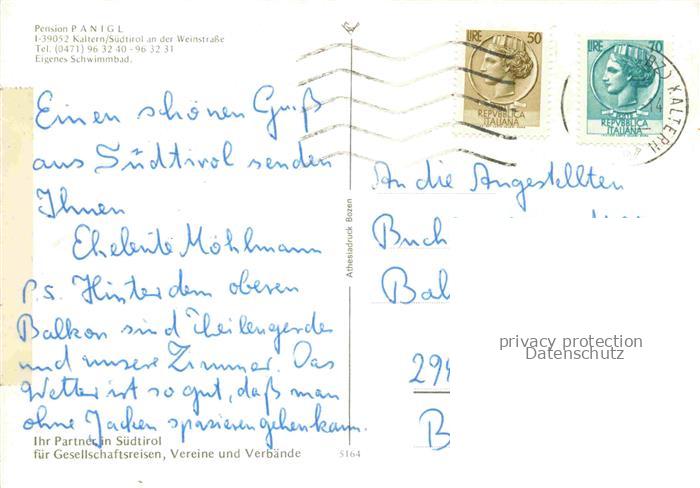 Pension PANIGL
I-39052 Kaltern/Südtirol an der Weinstraße
Tel. (0471) 96 32 40 - 96 32 31
Eigenes Schwimmbad.
LIRE 50
REPVBBLICA
ITALIANA
LIRE 70
REPVBBLICA
ITALIANA
KALTERN
Einen schönen Gruß
aus Südtirol senden
Ihnen
Eheleute Möhlmann
P.S. Hinter dem oberen
Balkon sind
und unsere Zimmer. Das
Wetter ist so gut, daß man
ohne Jacken spazierengehen kann.
Ihr Partner in Südtirol
für Gesellschaftsreisen, Vereine und Verbände
5164
Athesiadruck Bozen
An die Angestellten
Buch
Bal
294
B
privacy protection
Datenschutz